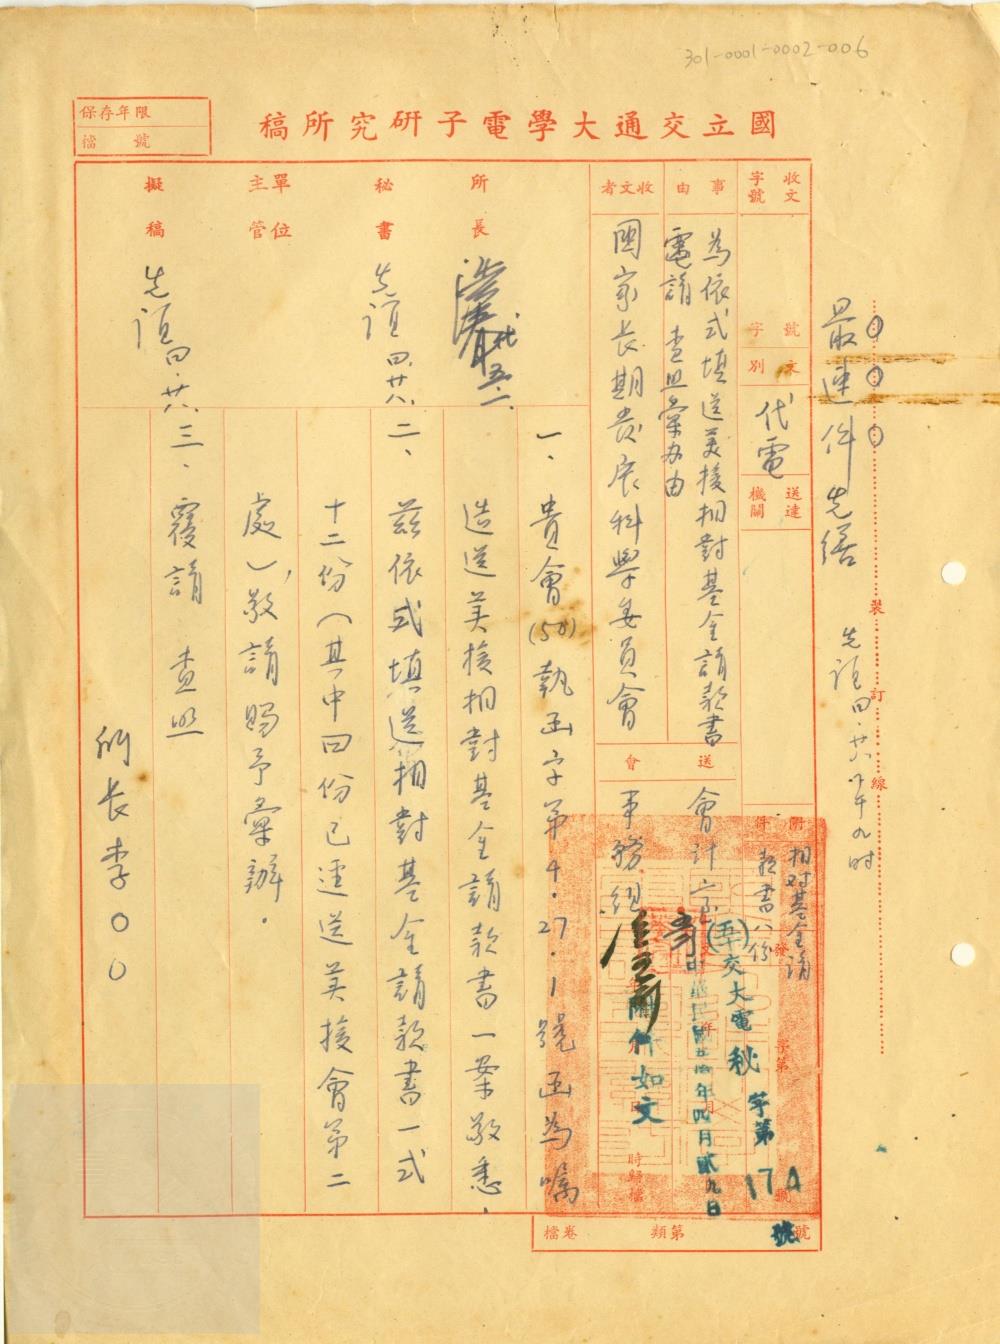 301-0001-0002-006
國立交通大學電子研究所稿
保存年限
檔號
最速件 先繕 先誼 四.廿八.下午九时
裝訂線
收文字號
字號
文別
代電
送達機關
附件
相对基金請款書八份
事由
為依式填送美援相對基金請款書
電請 查照彙办由
收文者
國家長期發展科學委員會
送會
會計室
事務組
所長
浩春代 五.二.
秘書
先誼 四.廿八.
單位主管
擬稿
先誼 四.廿八.
一、貴會(50)執函字第4.27.1號函為囑
造送美援相對基金請款書一案敬悉.
二、茲依式填送相對基金請款書一式
十二份(其中四份已逕送美援會第二
處),敬請賜予彙辦.
三、覆請 查照
所長李○○
(五十)交大電秘字第174號
中華民國五拾年四月貳九日
附件如文
發文
年月日
時歸檔
字第號
檔卷 類 第 號